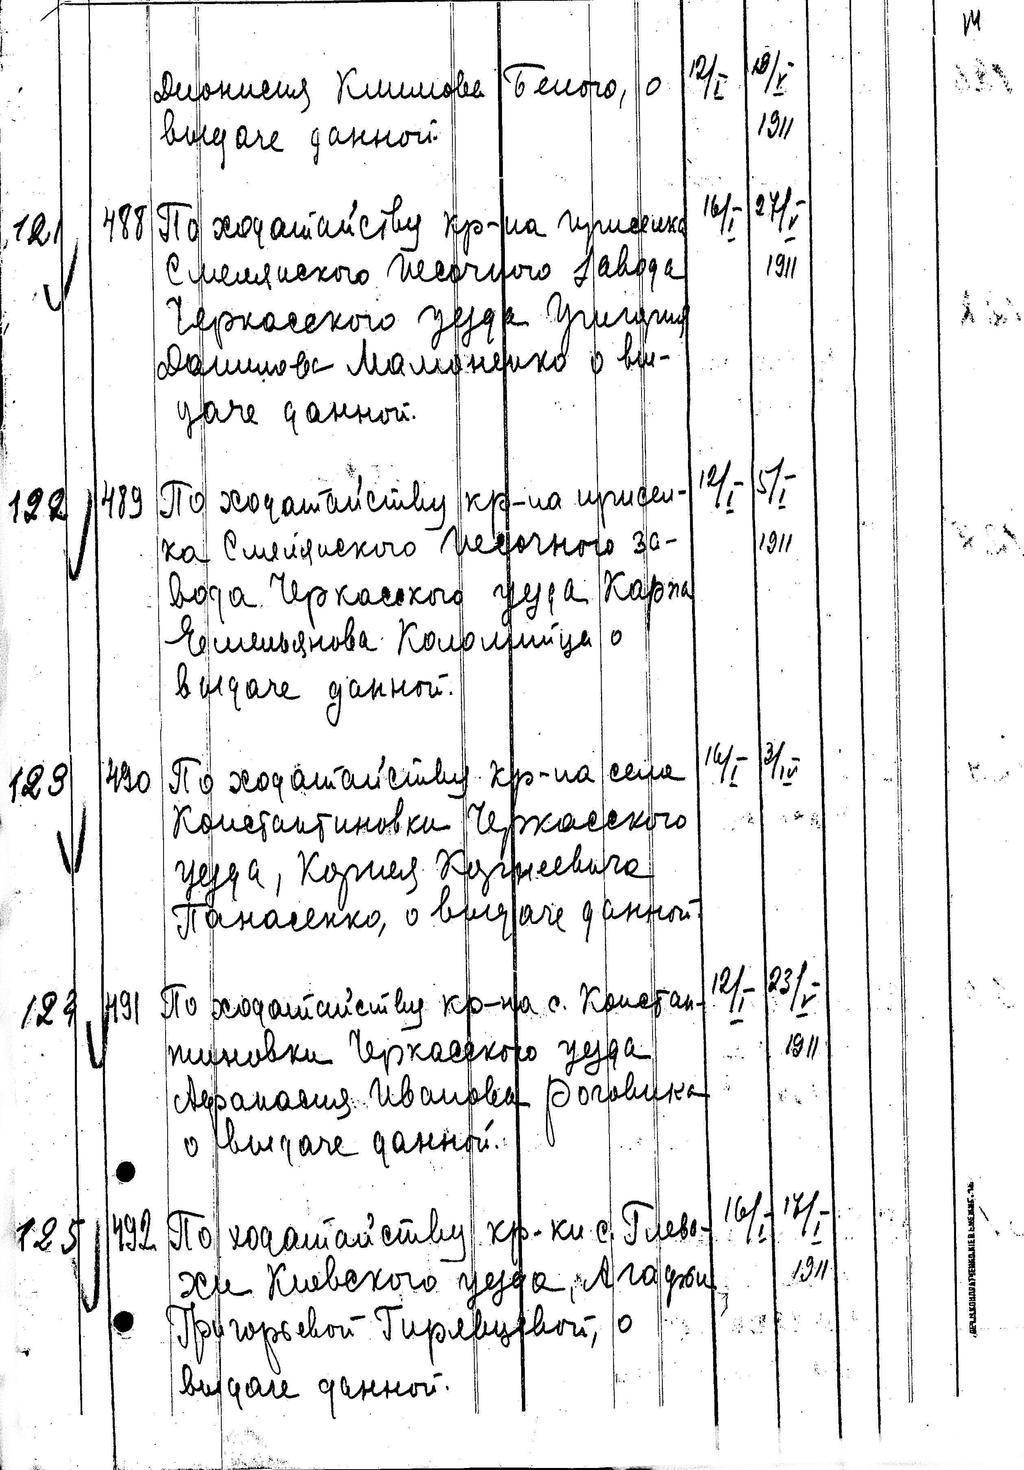 Дионисия Климова Белого, о 12/I 18/V
выдаче данной. 1911
121 488 По ходатайству кр-на приселка 16/I 27/V
Смелянского Песочного Завода 1911
Черкасского уезда Григория
Данилова Мамоненко о вы-
даче данной.
122 489 По ходатайству кр-на присел- 12/I 5/I
ка Смелянского Песочного за- 1911
вода Черкасского уезда Карпа
Емельянова Коломийца о
выдаче данной.
123 490 По ходатайству кр-на села 16/I 3/IV
Константиновки Черкасского
уезда, Корнея Корнеевича
Панасенко, о выдаче данной.
124 491 По ходатайству кр-на с. Констан- 12/I 23/V
тиновки Черкасского уезда 1911
Афанасия Иванова Роговика
о выдаче данной.
125 492 По ходатайству кр-ки с. Глева- 16/I 17/I
хи Киевского уезда, Агафьи 1911
Григорьевой Гирявцевой, о
выдаче данной.